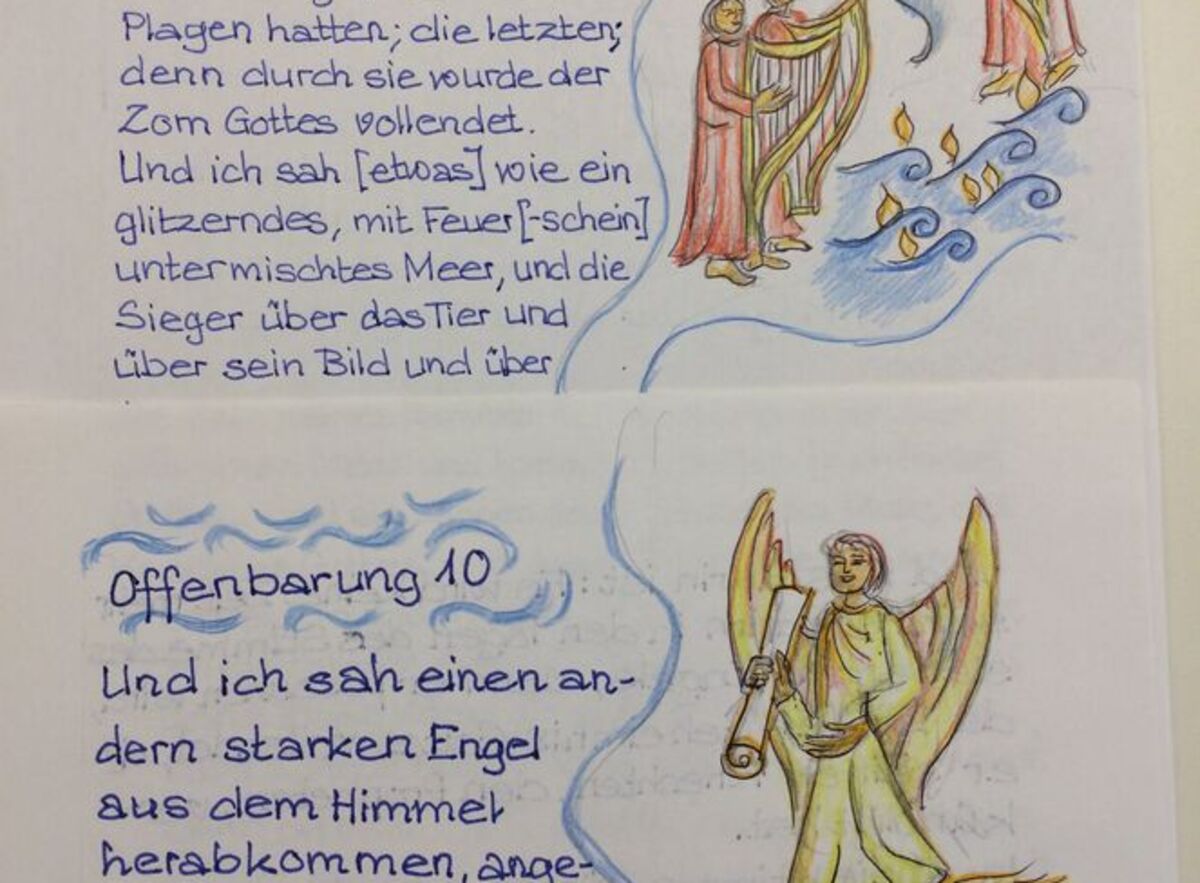 Plagen hatten; die letzten;
denn durch sie wurde der
Zorn Gottes vollendet.
Und ich sah [etwas] wie ein
glitzerndes, mit Feuer[-schein]
untermischtes Meer, und die
Sieger über das Tier und
über sein Bild und über
Offenbarung 10
Und ich sah einen an-
dern starken Engel
aus dem Himmel
herabkommen, ange-